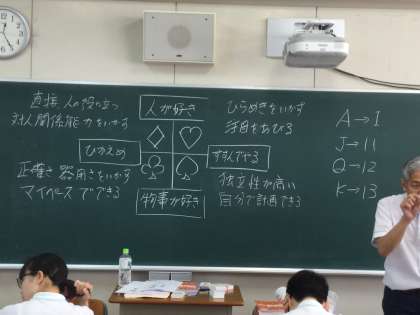 直接 人の役に立つ
対人関係能力をいかす
人が好き
ひらめきをいかす
注目をあびる
ひかえめ
♢ ♡
♧ ♤
すすんでやる
正確さ 器用さをいかす
マイペースでできる
物事が好き
独立性が高い
自分で計画できる
A→1
J→11
Q→12
K→13